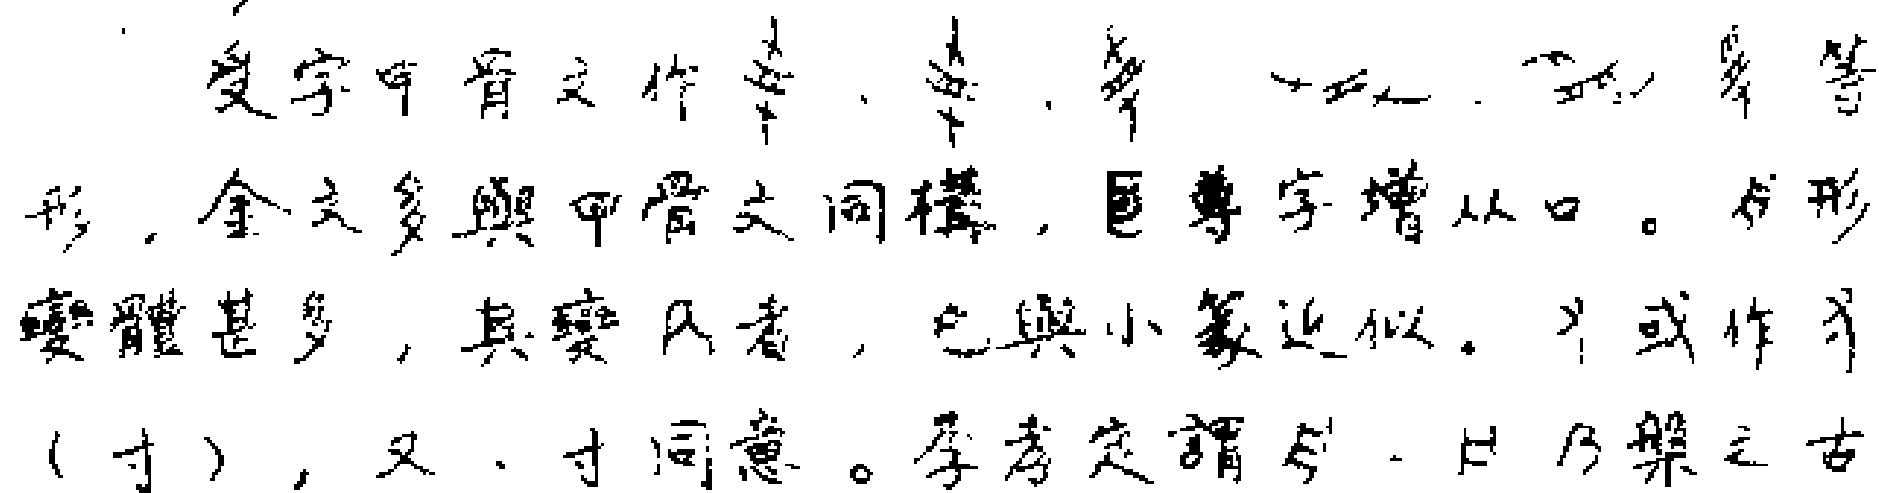 受字甲骨文作、、、等
形，金文多與甲骨文同構，尊字增从口。形
變體甚多，其變者，已與小篆近似。或作
（寸），又、寸同意。李孝定謂、乃槃之古